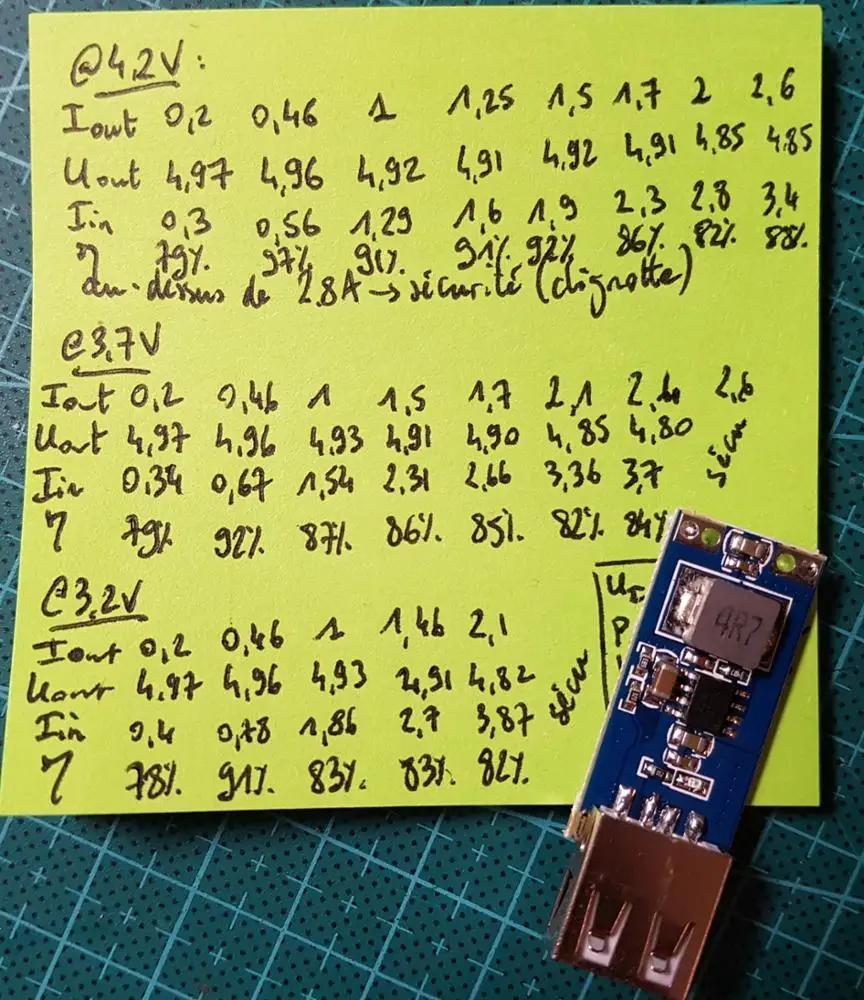 @4,2V:
Iout 0,2 0,46 1 1,25 1,5 1,7 2 2,6
Uout 4,97 4,96 4,92 4,91 4,92 4,91 4,85 4.85
Iin 0,3 0,56 1,29 1,6 1,9 2,3 2,8 3,4
η 79% 97% 91% 91% 92% 86% 82% 88%
au-dessus de 2,8A → sécurité (clignotte)
@3,7V
Iout 0,2 0,46 1 1,5 1,7 2,1 2,4 2,6
Uout 4,97 4,96 4,93 4,91 4,90 4,85 4,80 sécu
Iin 0,34 0,67 1,54 2,31 2,66 3,36 3,7
η 79% 92% 87% 86% 85% 82% 84%
@3,2V
Iout 0,2 0,46 1 1,46 2,1
Uout 4,97 4,96 4,93 4,91 4,82 sécu
Iin 0,4 0,78 1,86 2,7 3,87
η 78% 91% 83% 83% 82%
4R7